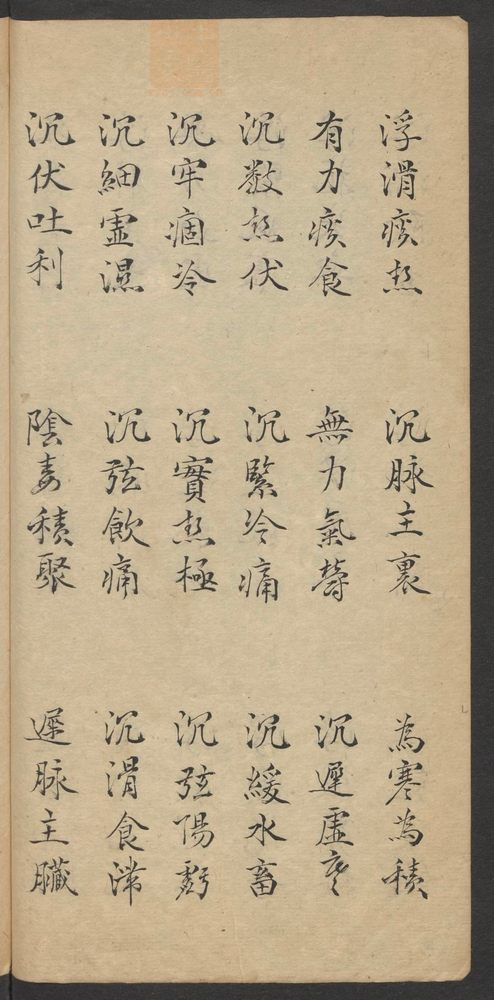 浮滑痰热 沉脉主裏 為寒為積
有力痰食 無力氣欝 沉遲虛寒
沉数热伏 沉緊冷痛 沉緩水畜
沉牢痼冷 沉實热極 沉弦陽虧
沉細虛濕 沉弦飲痛 沉滑食滞
沉伏吐利 陰毒積聚 遲脉主臓